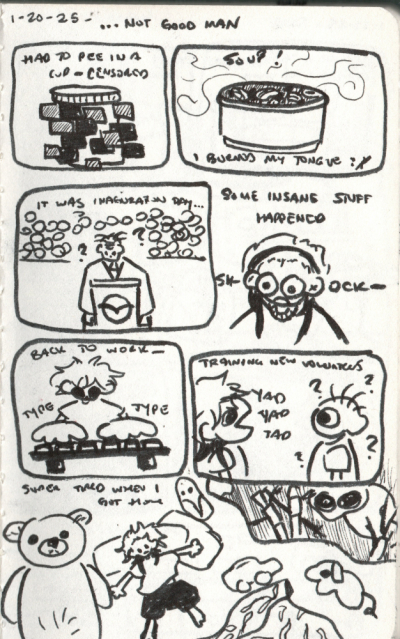 1-20-25- ... NOT GOOD MAN
HAD TO PEE IN A
CUP - CENSORED
SOUP!
I BURNED MY TONGUE :X
IT WAS INAGURATION DAY...
? ?
SOME INSANE STUFF
HAPPENED
SH OCK-
BACK TO WORK -
TYPE TYPE
TRAINING NEW VOLUNTEERS
YAD
YAD
YAD
? ?
? ?
SUPER TIRED WHEN I
GOT HOME